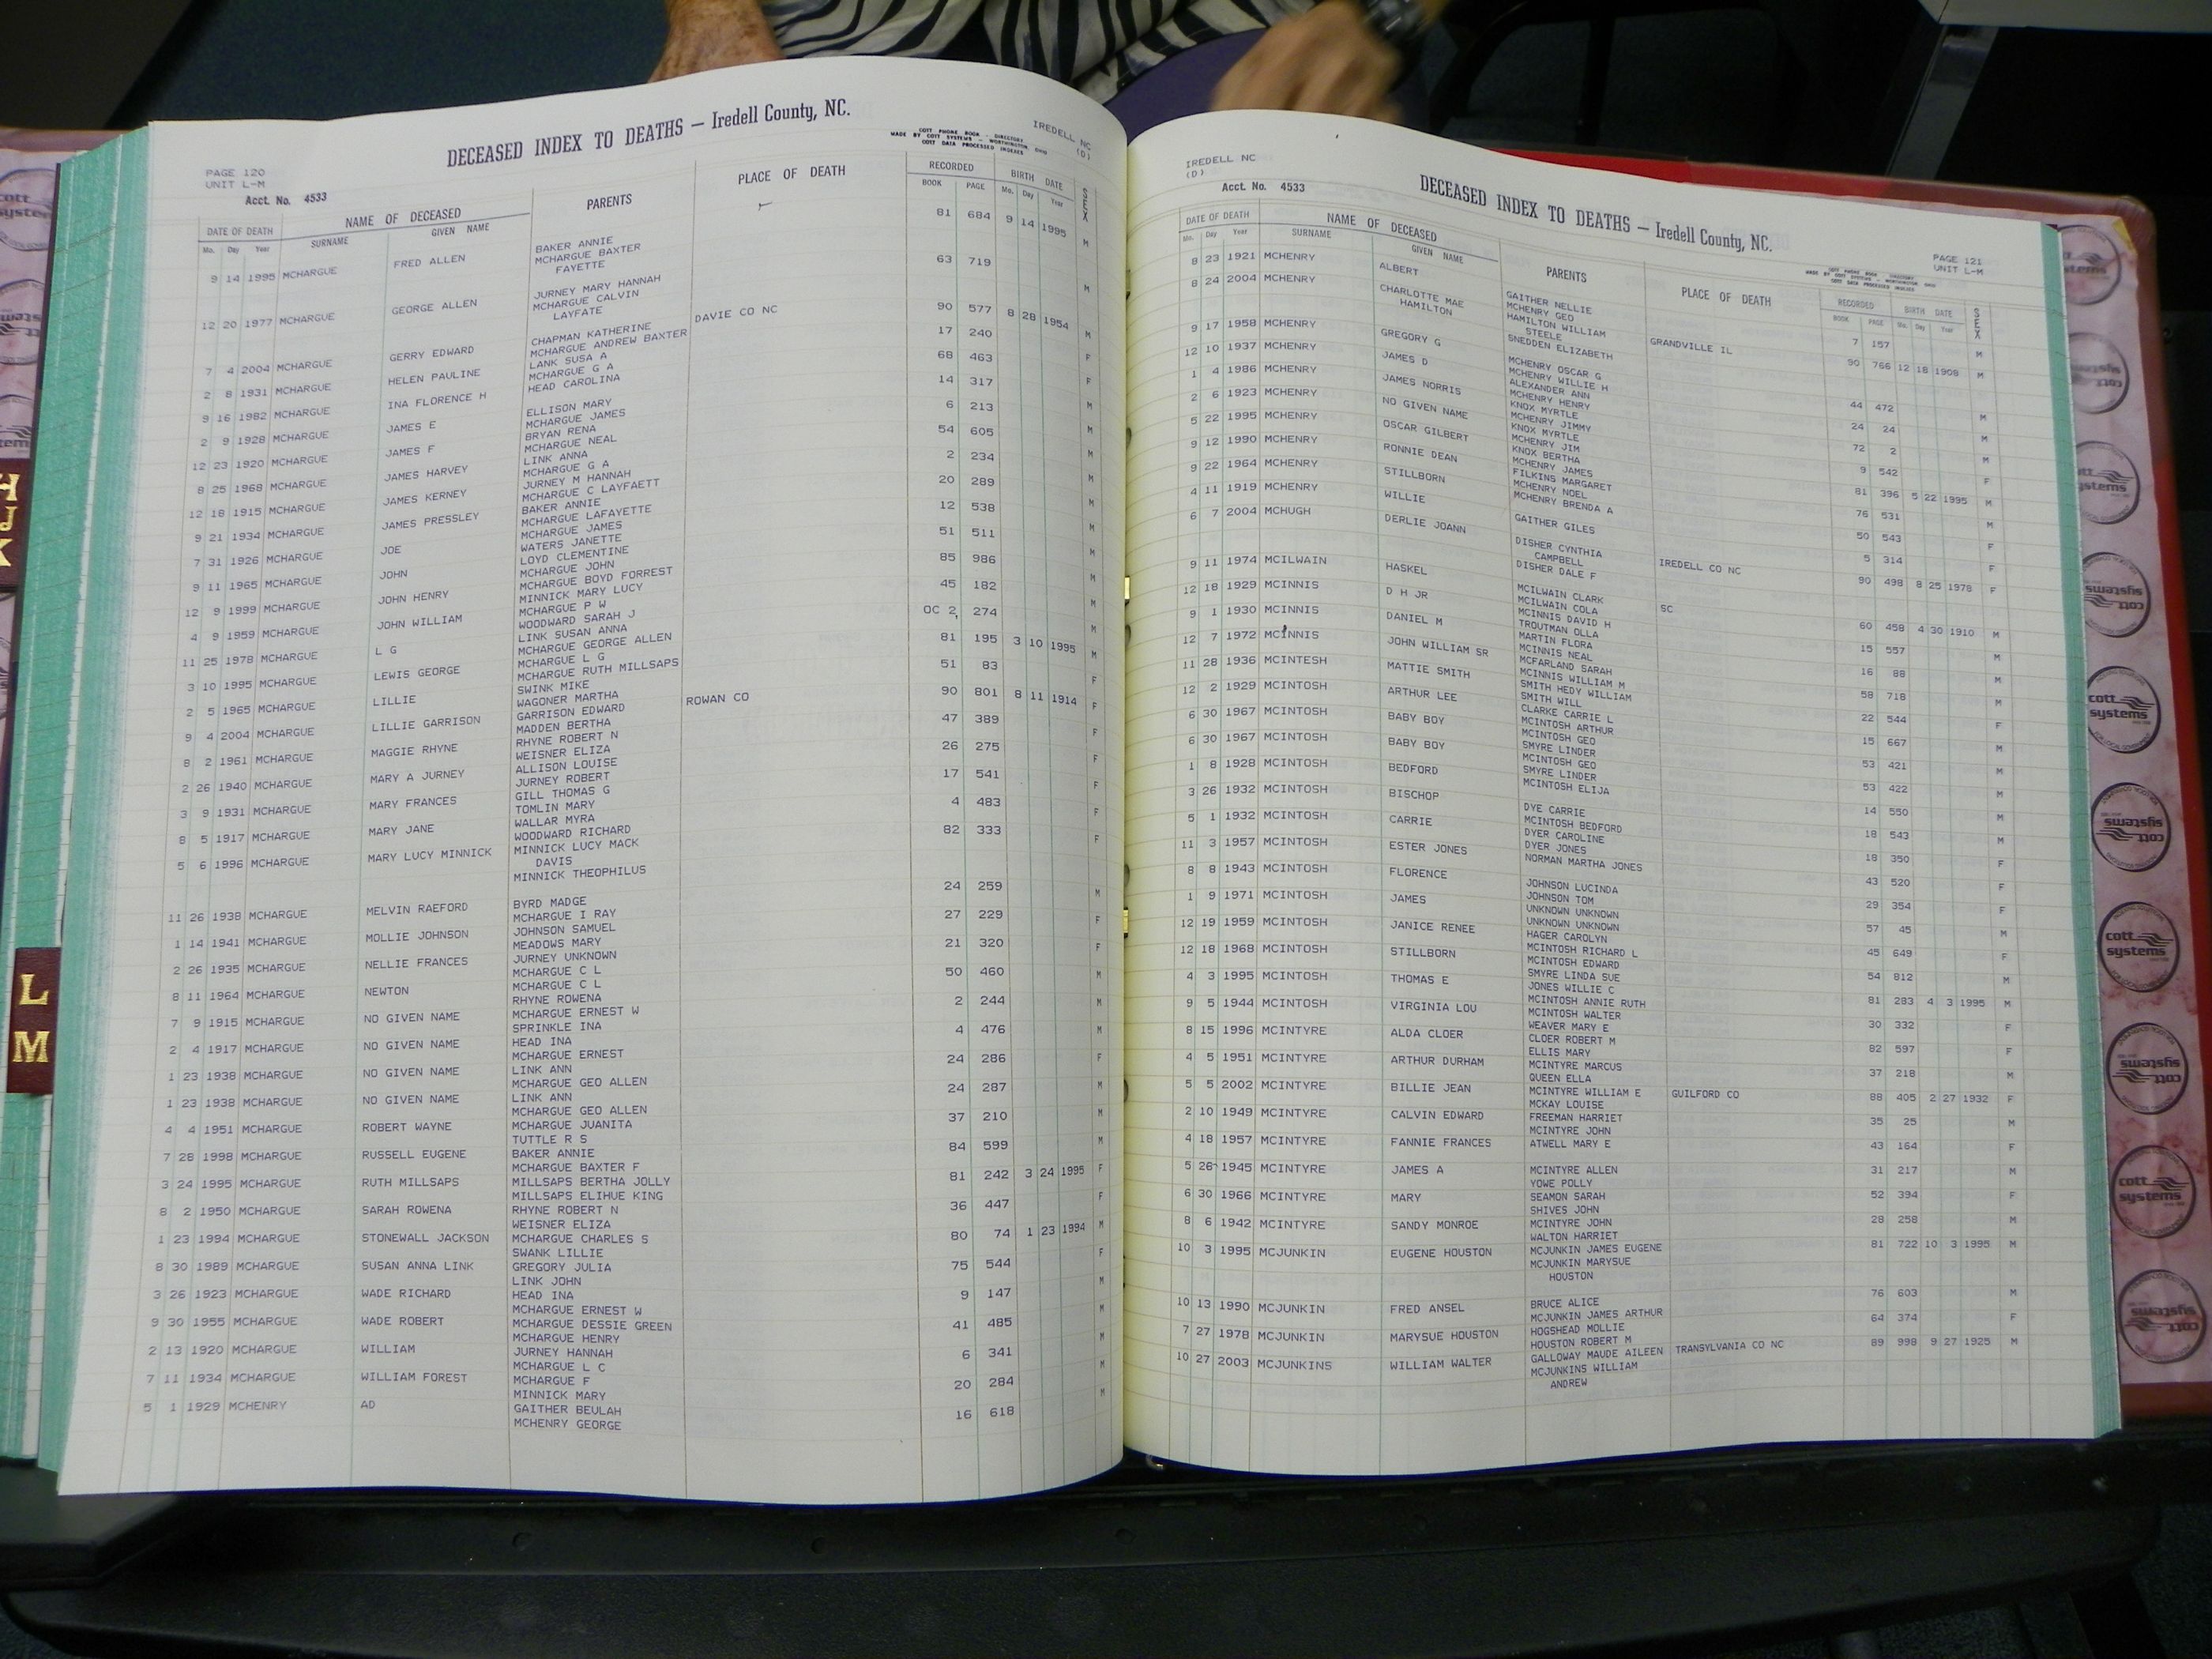 PAGE 120
UNIT L-M
DECEASED INDEX TO DEATHS — Iredell County, NC.
COTT PHONE BOOK - DIRECTORY
MADE BY COTT SYSTEMS - WORTHINGTON OHIO
COTT DATA PROCESSED INDEXES
IREDELL NC
(D)
Acct. No. 4533
DATE OF DEATH NAME OF DECEASED PARENTS PLACE OF DEATH RECORDED BIRTH DATE SEX
Mo. Day Year SURNAME GIVEN NAME BOOK PAGE Mo. Day Year
9 14 1995 MCHARGUE FRED ALLEN BAKER ANNIE 81 684 9 14 1995 M
MCHARGUE BAXTER
FAYETTE
12 20 1977 MCHARGUE GEORGE ALLEN JURNEY MARY HANNAH 63 719 M
MCHARGUE CALVIN
LAYFATE
7 4 2004 MCHARGUE GERRY EDWARD CHAPMAN KATHERINE DAVIE CO NC 90 577 8 28 1954 M
MCHARGUE ANDREW BAXTER
2 8 1931 MCHARGUE HELEN PAULINE LANK SUSA A 17 240
MCHARGUE G A
9 16 1982 MCHARGUE INA FLORENCE H HEAD CAROLINA 68 463 F
2 9 1928 MCHARGUE JAMES E ELLISON MARY 14 317 M
MCHARGUE JAMES
12 23 1920 MCHARGUE JAMES F BRYAN RENA 6 213 M
MCHARGUE NEAL
8 25 1968 MCHARGUE JAMES HARVEY LINK ANNA 54 605 M
MCHARGUE G A
12 18 1915 MCHARGUE JAMES KERNEY JURNEY M HANNAH 2 234 M
MCHARGUE C LAYFAETT
9 21 1934 MCHARGUE JAMES PRESSLEY BAKER ANNIE 20 289 M
MCHARGUE LAFAYETTE
7 31 1926 MCHARGUE JOE MCHARGUE JAMES 12 538 M
WATERS JANETTE
9 11 1965 MCHARGUE JOHN LOYD CLEMENTINE 51 511 M
MCHARGUE JOHN
12 9 1999 MCHARGUE JOHN HENRY MCHARGUE BOYD FORREST 85 986 M
MINNICK MARY LUCY
4 9 1959 MCHARGUE JOHN WILLIAM MCHARGUE P W 45 182 M
WOODWARD SARAH J
11 25 1978 MCHARGUE L G LINK SUSAN ANNA OC 2 274 M
MCHARGUE GEORGE ALLEN
3 10 1995 MCHARGUE LEWIS GEORGE MCHARGUE L G 81 195 3 10 1995 M
MCHARGUE RUTH MILLSAPS
2 5 1965 MCHARGUE LILLIE SWINK MIKE 51 83 F
WAGONER MARTHA
9 4 2004 MCHARGUE LILLIE GARRISON GARRISON EDWARD ROWAN CO 90 801 8 11 1914 F
MADDEN BERTHA
8 2 1961 MCHARGUE MAGGIE RHYNE RHYNE ROBERT N 47 389 F
WEISNER ELIZA
2 26 1940 MCHARGUE MARY A JURNEY ALLISON LOUISE 26 275 F
JURNEY ROBERT
3 9 1931 MCHARGUE MARY FRANCES GILL THOMAS G 17 541 F
TOMLIN MARY
8 5 1917 MCHARGUE MARY JANE WALLAR MYRA 4 483 F
WOODWARD RICHARD
5 6 1996 MCHARGUE MARY LUCY MINNICK MINNICK LUCY MACK 82 333 F
DAVIS
MINNICK THEOPHILUS
11 26 1938 MCHARGUE MELVIN RAEFORD BYRD MADGE 24 259 M
MCHARGUE I RAY
1 14 1941 MCHARGUE MOLLIE JOHNSON JOHNSON SAMUEL 27 229 F
MEADOWS MARY
2 26 1935 MCHARGUE NELLIE FRANCES JURNEY UNKNOWN 21 320 F
MCHARGUE C L
8 11 1964 MCHARGUE NEWTON MCHARGUE C L 50 460 M
RHYNE ROWENA
7 9 1915 MCHARGUE NO GIVEN NAME MCHARGUE ERNEST W 2 244 M
SPRINKLE INA
2 4 1917 MCHARGUE NO GIVEN NAME HEAD INA 4 476 M
MCHARGUE ERNEST
1 23 1938 MCHARGUE NO GIVEN NAME LINK ANN 24 286 F
MCHARGUE GEO ALLEN
1 23 1938 MCHARGUE NO GIVEN NAME LINK ANN 24 287 M
MCHARGUE GEO ALLEN
4 4 1951 MCHARGUE ROBERT WAYNE MCHARGUE JUANITA 37 210 M
TUTTLE R S
7 28 1998 MCHARGUE RUSSELL EUGENE BAKER ANNIE 84 599 M
MCHARGUE BAXTER F
3 24 1995 MCHARGUE RUTH MILLSAPS MILLSAPS BERTHA JOLLY 81 242 3 24 1995 F
MILLSAPS ELIHUE KING
8 2 1950 MCHARGUE SARAH ROWENA RHYNE ROBERT N 36 447 F
WEISNER ELIZA
1 23 1994 MCHARGUE STONEWALL JACKSON MCHARGUE CHARLES S 80 74 1 23 1994 M
SWANK LILLIE
8 30 1989 MCHARGUE SUSAN ANNA LINK GREGORY JULIA 75 544 F
LINK JOHN
3 26 1923 MCHARGUE WADE RICHARD HEAD INA 9 147 M
MCHARGUE ERNEST W
9 30 1955 MCHARGUE WADE ROBERT MCHARGUE DESSIE GREEN 41 485 M
MCHARGUE HENRY
2 13 1920 MCHARGUE WILLIAM JURNEY HANNAH 6 341 M
MCHARGUE L C
7 11 1934 MCHARGUE WILLIAM FOREST MCHARGUE F 20 284 M
MINNICK MARY
5 1 1929 MCHENRY AD GAITHER BEULAH 16 618 M
MCHENRY GEORGE
IREDELL NC
(D)
Acct. No. 4533
DECEASED INDEX TO DEATHS — Iredell County, NC.
PAGE 121
UNIT L-M
COTT PHONE BOOK - DIRECTORY
MADE BY COTT SYSTEMS - WORTHINGTON OHIO
COTT DATA PROCESSED INDEXES
DATE OF DEATH NAME OF DECEASED PARENTS PLACE OF DEATH RECORDED BIRTH DATE SEX
Mo. Day Year SURNAME GIVEN NAME BOOK PAGE Mo. Day Year
8 23 1921 MCHENRY ALBERT GAITHER NELLIE 7 157 M
MCHENRY GEO
8 24 2004 MCHENRY CHARLOTTE MAE HAMILTON WILLIAM GRANDVILLE IL 90 766 12 18 1908 M
HAMILTON STEELE
SNEDDEN ELIZABETH
9 17 1958 MCHENRY GREGORY G MCHENRY OSCAR G 44 472 M
MCHENRY WILLIE H
12 10 1937 MCHENRY JAMES D ALEXANDER ANN 24 24 M
MCHENRY HENRY
1 4 1986 MCHENRY JAMES NORRIS KNOX MYRTLE 72 2 M
MCHENRY JIMMY
2 6 1923 MCHENRY NO GIVEN NAME KNOX MYRTLE 9 542 F
MCHENRY JIM
5 22 1995 MCHENRY OSCAR GILBERT KNOX BERTHA 81 396 5 22 1995 M
MCHENRY JAMES
9 12 1990 MCHENRY RONNIE DEAN FILKINS MARGARET 76 531 M
MCHENRY NOEL
9 22 1964 MCHENRY STILLBORN MCHENRY BRENDA A 50 543 F
4 11 1919 MCHENRY WILLIE GAITHER GILES 5 314 F
6 7 2004 MCHUGH DERLIE JOANN DISHER CYNTHIA IREDELL CO NC 90 498 8 25 1978 F
CAMPBELL
DISHER DALE F
9 11 1974 MCILWAIN HASKEL MCILWAIN CLARK SC 60 458 4 30 1910 M
MCILWAIN COLA
12 18 1929 MCINNIS D H JR MCINNIS DAVID H 15 557 M
TROUTMAN OLLA
9 1 1930 MCINNIS DANIEL M MARTIN FLORA 16 88 M
MCINNIS NEAL
12 7 1972 MCINNIS JOHN WILLIAM SR MCFARLAND SARAH 58 718 M
MCINNIS WILLIAM M
11 28 1936 MCINTESH MATTIE SMITH SMITH HEDY WILLIAM 22 544 F
SMITH WILL
12 2 1929 MCINTOSH ARTHUR LEE CLARKE CARRIE L 15 667 M
MCINTOSH ARTHUR
6 30 1967 MCINTOSH BABY BOY MCINTOSH GEO 53 421 M
SMYRE LINDER
6 30 1967 MCINTOSH BABY BOY MCINTOSH GEO 53 422 M
SMYRE LINDER
1 8 1928 MCINTOSH BEDFORD MCINTOSH ELIJA 14 550 M
3 26 1932 MCINTOSH BISCHOP DYE CARRIE 18 543 M
MCINTOSH BEDFORD
5 1 1932 MCINTOSH CARRIE DYER CAROLINE 18 350 F
DYER JONES
11 3 1957 MCINTOSH ESTER JONES NORMAN MARTHA JONES 43 520 F
8 8 1943 MCINTOSH FLORENCE JOHNSON LUCINDA 29 354 F
JOHNSON TOM
1 9 1971 MCINTOSH JAMES UNKNOWN UNKNOWN 57 45 M
UNKNOWN UNKNOWN
12 19 1959 MCINTOSH JANICE RENEE HAGER CAROLYN 45 649 F
MCINTOSH RICHARD L
12 18 1968 MCINTOSH STILLBORN MCINTOSH EDWARD 54 812 M
SMYRE LINDA SUE
4 3 1995 MCINTOSH THOMAS E JONES WILLIE C 81 283 4 3 1995 M
MCINTOSH ANNIE RUTH
9 5 1944 MCINTOSH VIRGINIA LOU MCINTOSH WALTER 30 332 F
WEAVER MARY E
8 15 1996 MCINTYRE ALDA CLOER CLOER ROBERT M 82 597 F
ELLIS MARY
4 5 1951 MCINTYRE ARTHUR DURHAM MCINTYRE MARCUS 37 218 M
QUEEN ELLA
5 5 2002 MCINTYRE BILLIE JEAN MCINTYRE WILLIAM E GUILFORD CO 88 405 2 27 1932 F
MCKAY LOUISE
2 10 1949 MCINTYRE CALVIN EDWARD FREEMAN HARRIET 35 25 M
MCINTYRE JOHN
4 18 1957 MCINTYRE FANNIE FRANCES ATWELL MARY E 43 164 F
5 26 1945 MCINTYRE JAMES A MCINTYRE ALLEN 31 217 M
YOWE POLLY
6 30 1966 MCINTYRE MARY SEAMON SARAH 52 394 F
SHIVES JOHN
8 6 1942 MCINTYRE SANDY MONROE MCINTYRE JOHN 28 258 M
WALTON HARRIET
10 3 1995 MCJUNKIN EUGENE HOUSTON MCJUNKIN JAMES EUGENE 81 722 10 3 1995 M
MCJUNKIN MARYSUE
HOUSTON
10 13 1990 MCJUNKIN FRED ANSEL BRUCE ALICE 76 603 M
MCJUNKIN JAMES ARTHUR
7 27 1978 MCJUNKIN MARYSUE HOUSTON HOGSHEAD MOLLIE 64 374 F
HOUSTON ROBERT M
10 27 2003 MCJUNKINS WILLIAM WALTER GALLOWAY MAUDE AILEEN TRANSYLVANIA CO NC 89 998 9 27 1925 M
MCJUNKINS WILLIAM
ANDREW
H
J
K
L
M
cott systems
cott systems
cott systems
cott systems